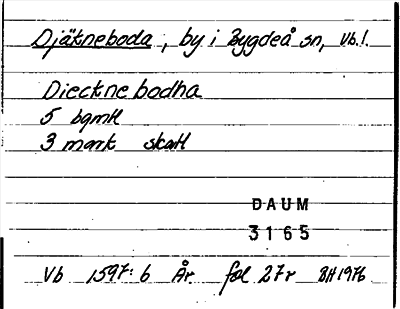 Djäkneboda, by i Bygdeå sn, Vb.l.
Dieckne bodha
5 bqmtl
3 mark skatt
DAUM
3165
Vb 1597:6 År fol 27r BH 1976